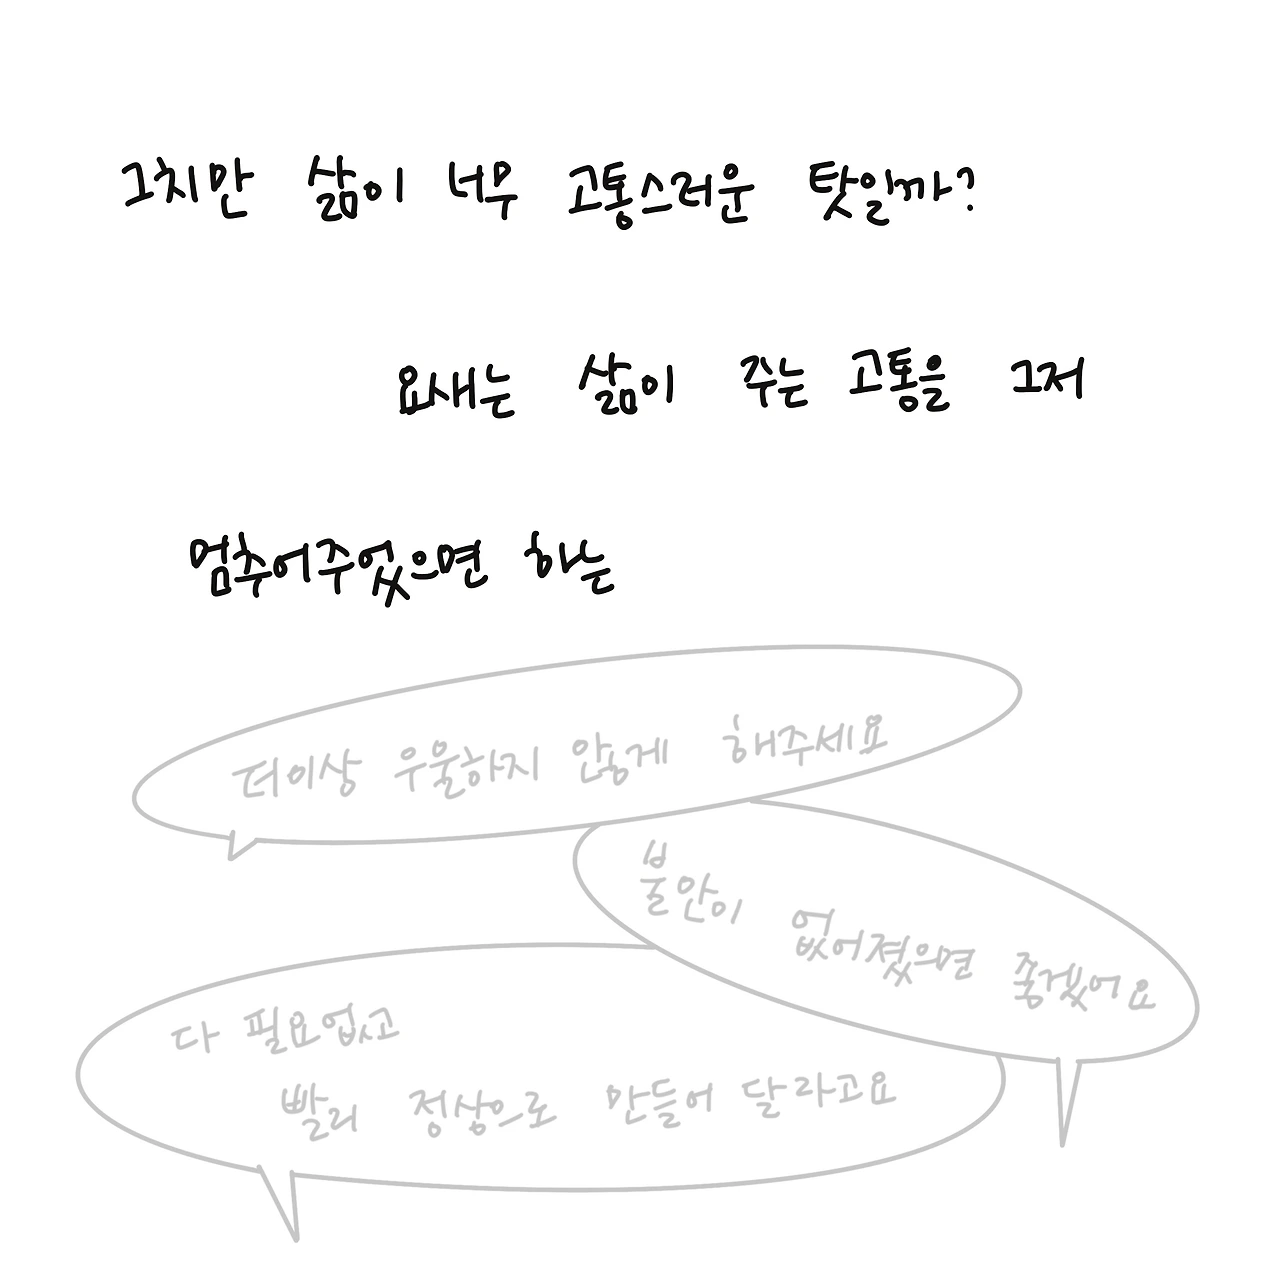 그치만 삶이 너무 고통스러운 탓일까?
요새는 삶이 주는 고통을 그저
멈추어주었으면 하는
더이상 우울하지 않게 해주세요
불안이 없어졌으면 좋겠어요
다 필요없고
빨리 정상으로 만들어 달라고요